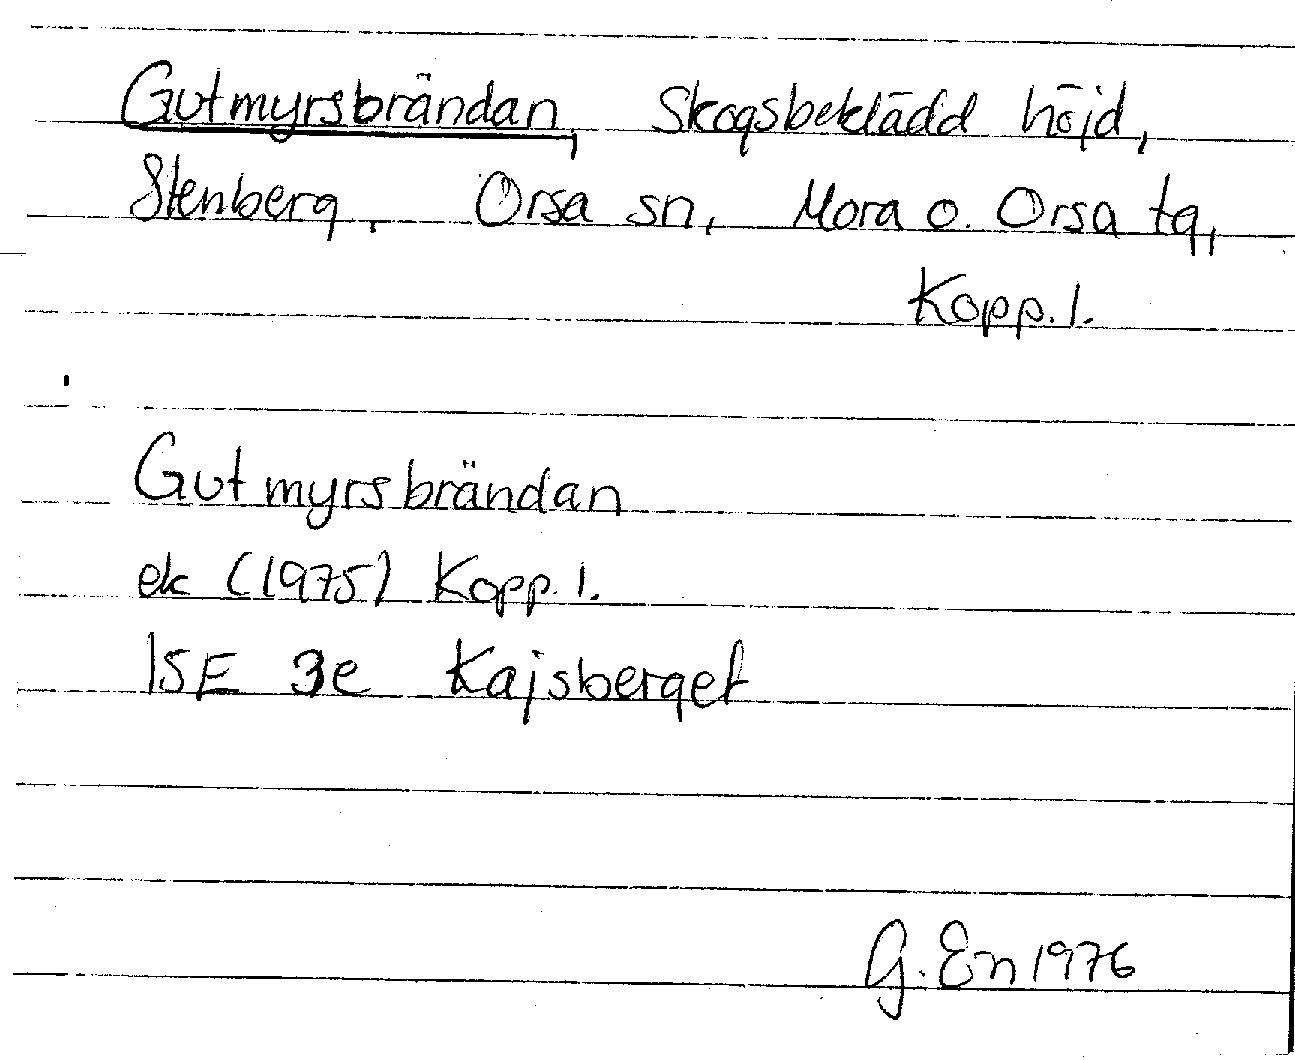 Gutmyrsbrändan, Skogsbeklädd höjd,
Stenberg, Orsa sn, Mora o. Orsa tg,
Kopp. l.
Gutmyrsbrändan
ek (1975) Kopp. l.
15E 3e Kajsberget
G. En 1976